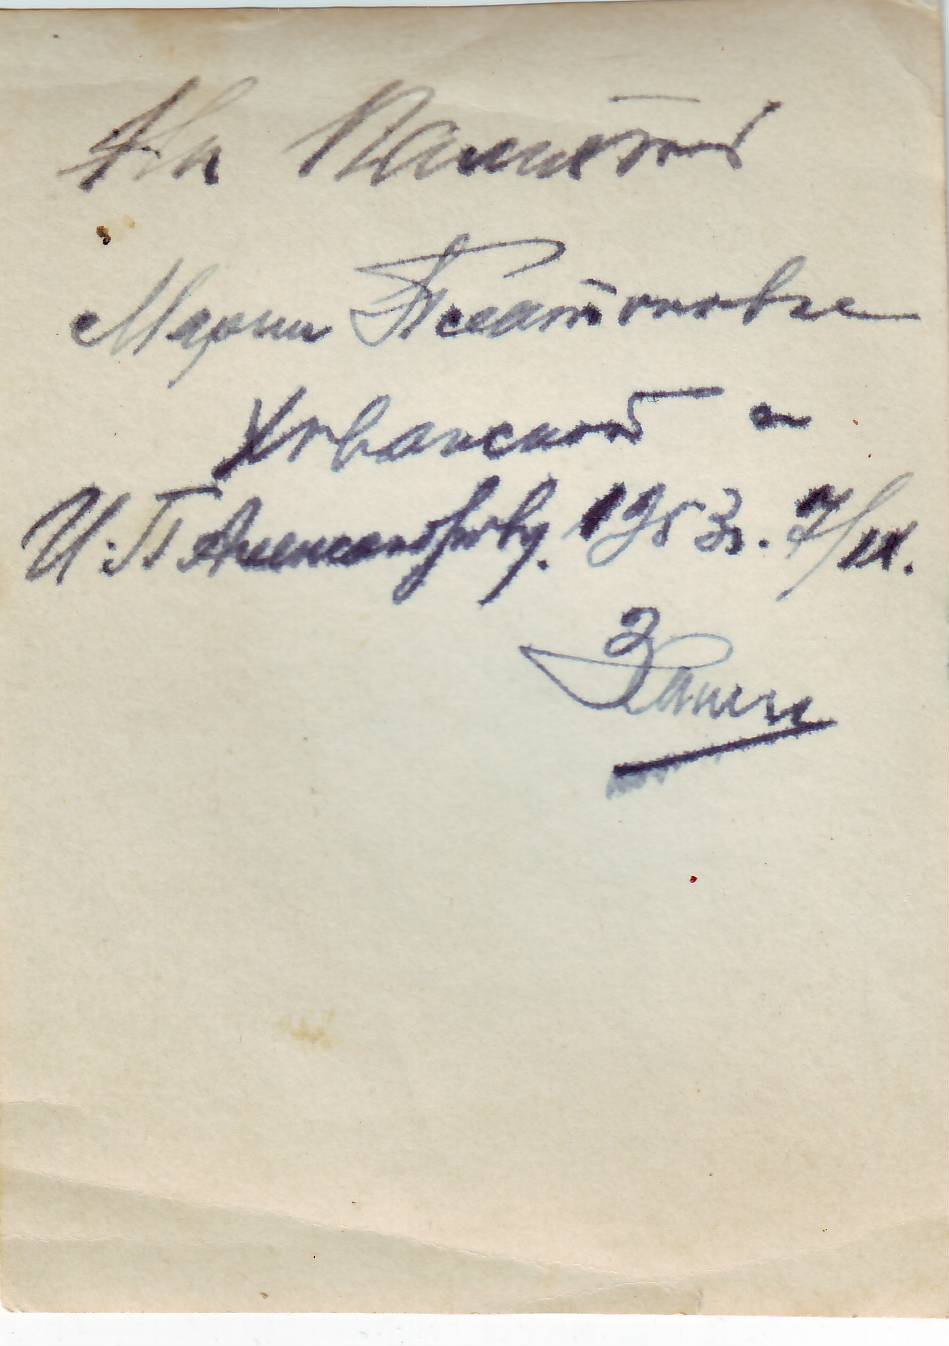 На Память
Марии Платоновне
Хованской и
И. П. Александрову. 1953 г. 7/IX.